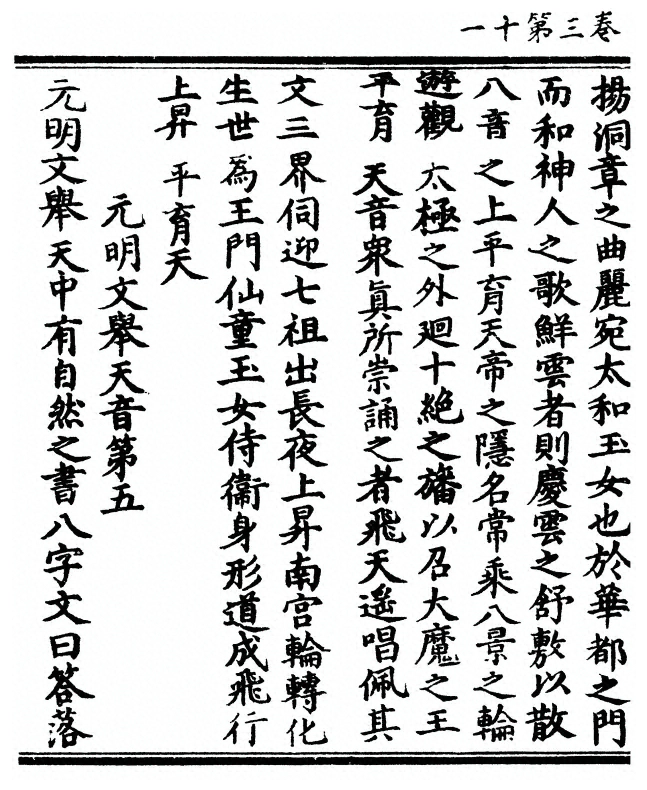 卷三第十一
揚洞章之曲麗宛太和玉女也於華都之門
而和神人之歌鮮雲者則慶雲之舒敷以散
八音之上平育天帝之隱名常乘八景之輪
遊觀太極之外迴十絶之旛以召大魔之王
平育天音衆眞所崇誦之者飛天遥唱佩其
文三界伺迎七祖出長夜上昇南宫輪轉化
生世爲王門仙童玉女侍衞身形道成飛行
上昇平育天
元明文舉天音第五
元明文舉天中有自然之書八字文曰答落